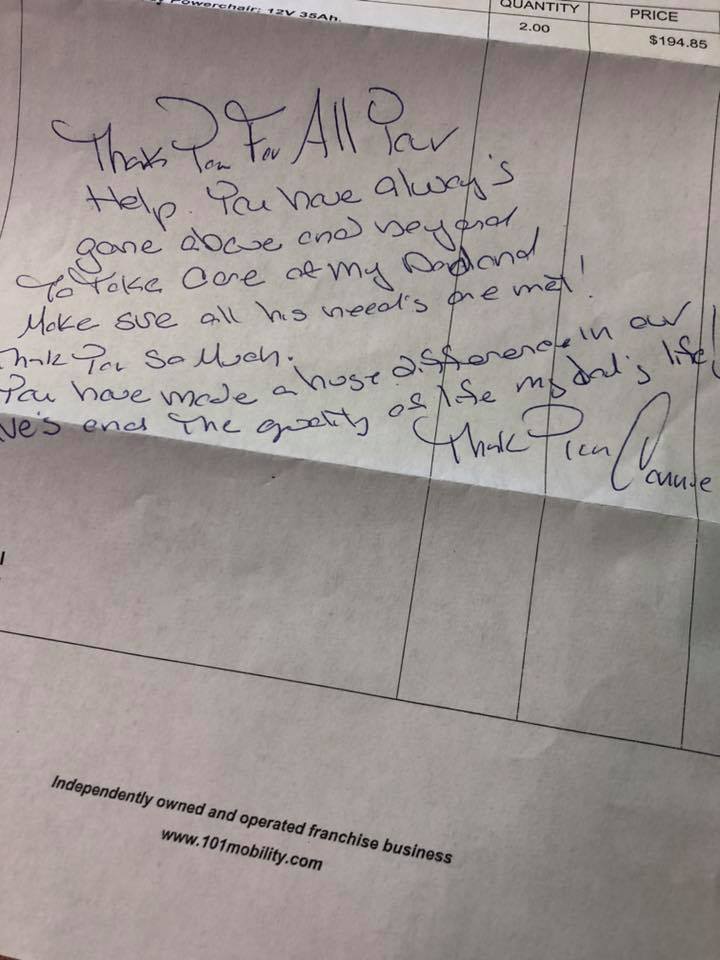 Powerchair: 12V 35Ah.
QUANTITY PRICE
2.00 $194.85
Thank You For All Your
Help. You have alway's
gone above and beyond
To Take Care of My Dad and
Make sure all his need's are met!
Thank You So Much.
You have made a huge difference in our
ve's and The quality of life my dad's life!
Thank You Connie
Independently owned and operated franchise business
www.101mobility.com